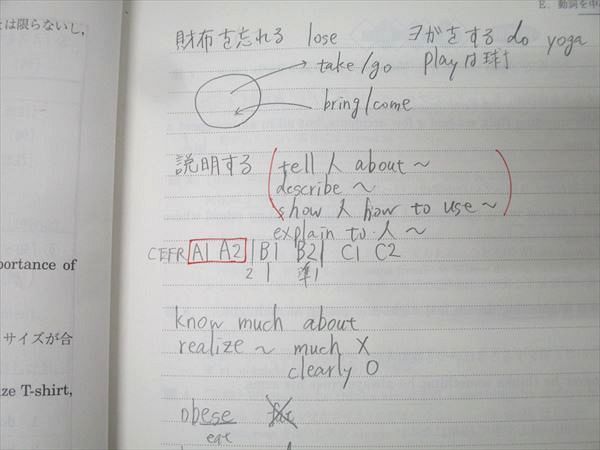 E. 動詞を中
とは限らないし,
財布を忘れる lose
ヨガをする do yoga
take/go
playは球技
bring/come
説明する
tell 人 about ～
describe ～
show 人 how to use ～
explain to 人 ～
CEFR A1 A2 | B1 B2 | C1 C2
2 1 準1
portance of
know much about
サイズが合
realize ～ much X
clearly O
ze T-shirt,
obese fat
eat